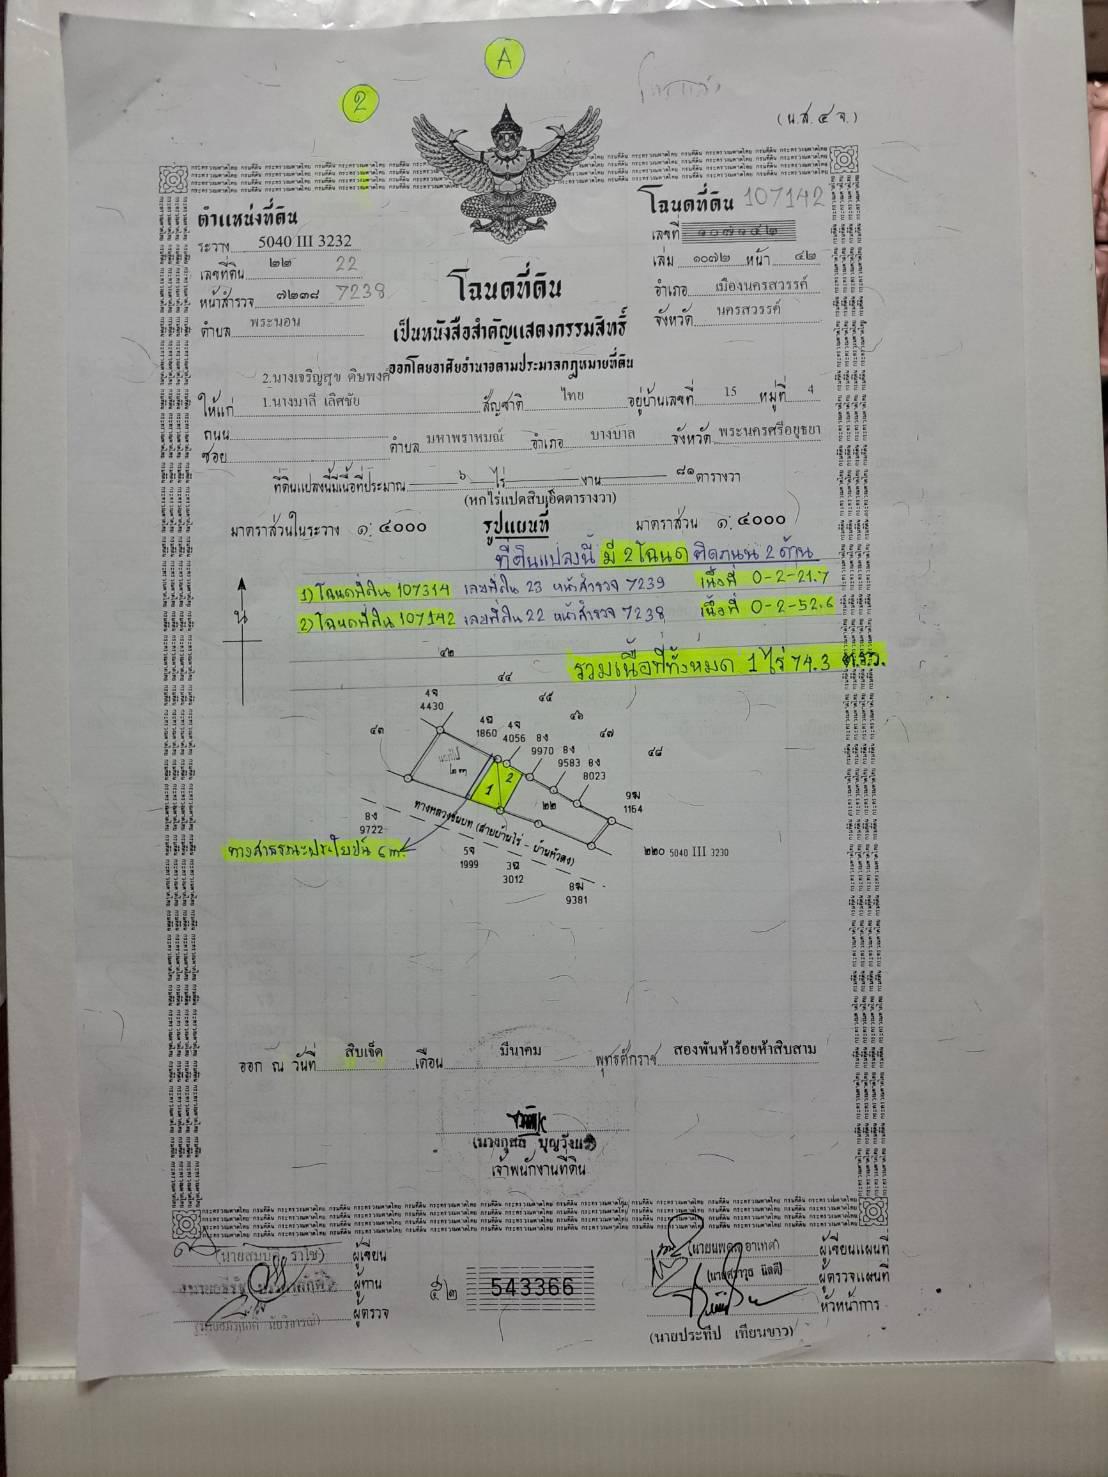 A
2
(น.ส. ๔ จ.)
ตำแหน่งที่ดิน
ระวาง 5040 III 3232
เลขที่ดิน ๒๒ 22
หน้าสำรวจ ๗๒๓๘ 7238
ตำบล พระนอน
โฉนดที่ดิน 107142
เลขที่ ๑๐๗๑๔๒
เล่ม ๑๐๗๒ หน้า ๔๒
อำเภอ เมืองนครสวรรค์
จังหวัด นครสวรรค์
โฉนดที่ดิน
เป็นหนังสือสำคัญแสดงกรรมสิทธิ์
ออกโดยอาศัยอำนาจตามประมวลกฎหมายที่ดิน
2.นางเจริญสุข ดิษพงค์
ให้แก่ 1.นางมาลี เลิศชัย สัญชาติ ไทย อยู่บ้านเลขที่ 15 หมู่ที่ 4
ถนน
ซอย ตำบล มหาพราหมณ์ อำเภอ บางบาล จังหวัด พระนครศรีอยุธยา
ที่ดินแปลงนี้มีเนื้อที่ประมาณ ๖ ไร่ งาน ๘๑ ตารางวา
(หกไร่แปดสิบเอ็ดตารางวา)
มาตราส่วนในระวาง ๑:๔๐๐๐ รูปแผนที่ มาตราส่วน ๑:๔๐๐๐
ที่ดินแปลงนี้ มี 2 โฉนด ติดถนน 2 ด้าน
1) โฉนดที่ดิน 107314 เลขที่ดิน 23 หน้าสำรวจ 7239 เนื้อที่ 0-2-21.7
2) โฉนดที่ดิน 107142 เลขที่ดิน 22 หน้าสำรวจ 7238 เนื้อที่ 0-2-52.6
รวมเนื้อที่ทั้งหมด 1 ไร่ 74.3 ต.ร.ว.
น
๔๒
๔๔
๔๕
๔๖
๔๗
๔๘
๔๓
4จ
4430
4ฉ
1860
4จ
4056
8ง
9970
8ง
9583
8ง
8023
9ฆ
1154
๒๓
1
2
๒๒
ทางหลวงชนบท (สายบ้านไร่ - บ้านหัวดง)
8ง
9722
5จ
1999
3ฉ
3012
8ฆ
9381
๒๒๐ 5040 III 3230
ทางสาธารณะประโยชน์ 6  m.
ออก ณ วันที่ สิบเจ็ด เดือน มีนาคม พุทธศักราช สองพันห้าร้อยห้าสิบสาม
เจ้าพนักงานที่ดิน
ผู้เขียน
ผู้ทาน
ผู้ตรวจ
๕๒ 543366
ผู้เขียนแผนที่
ผู้ตรวจแผนที่
หัวหน้าการ
(นายประทีป เทียนขาว)